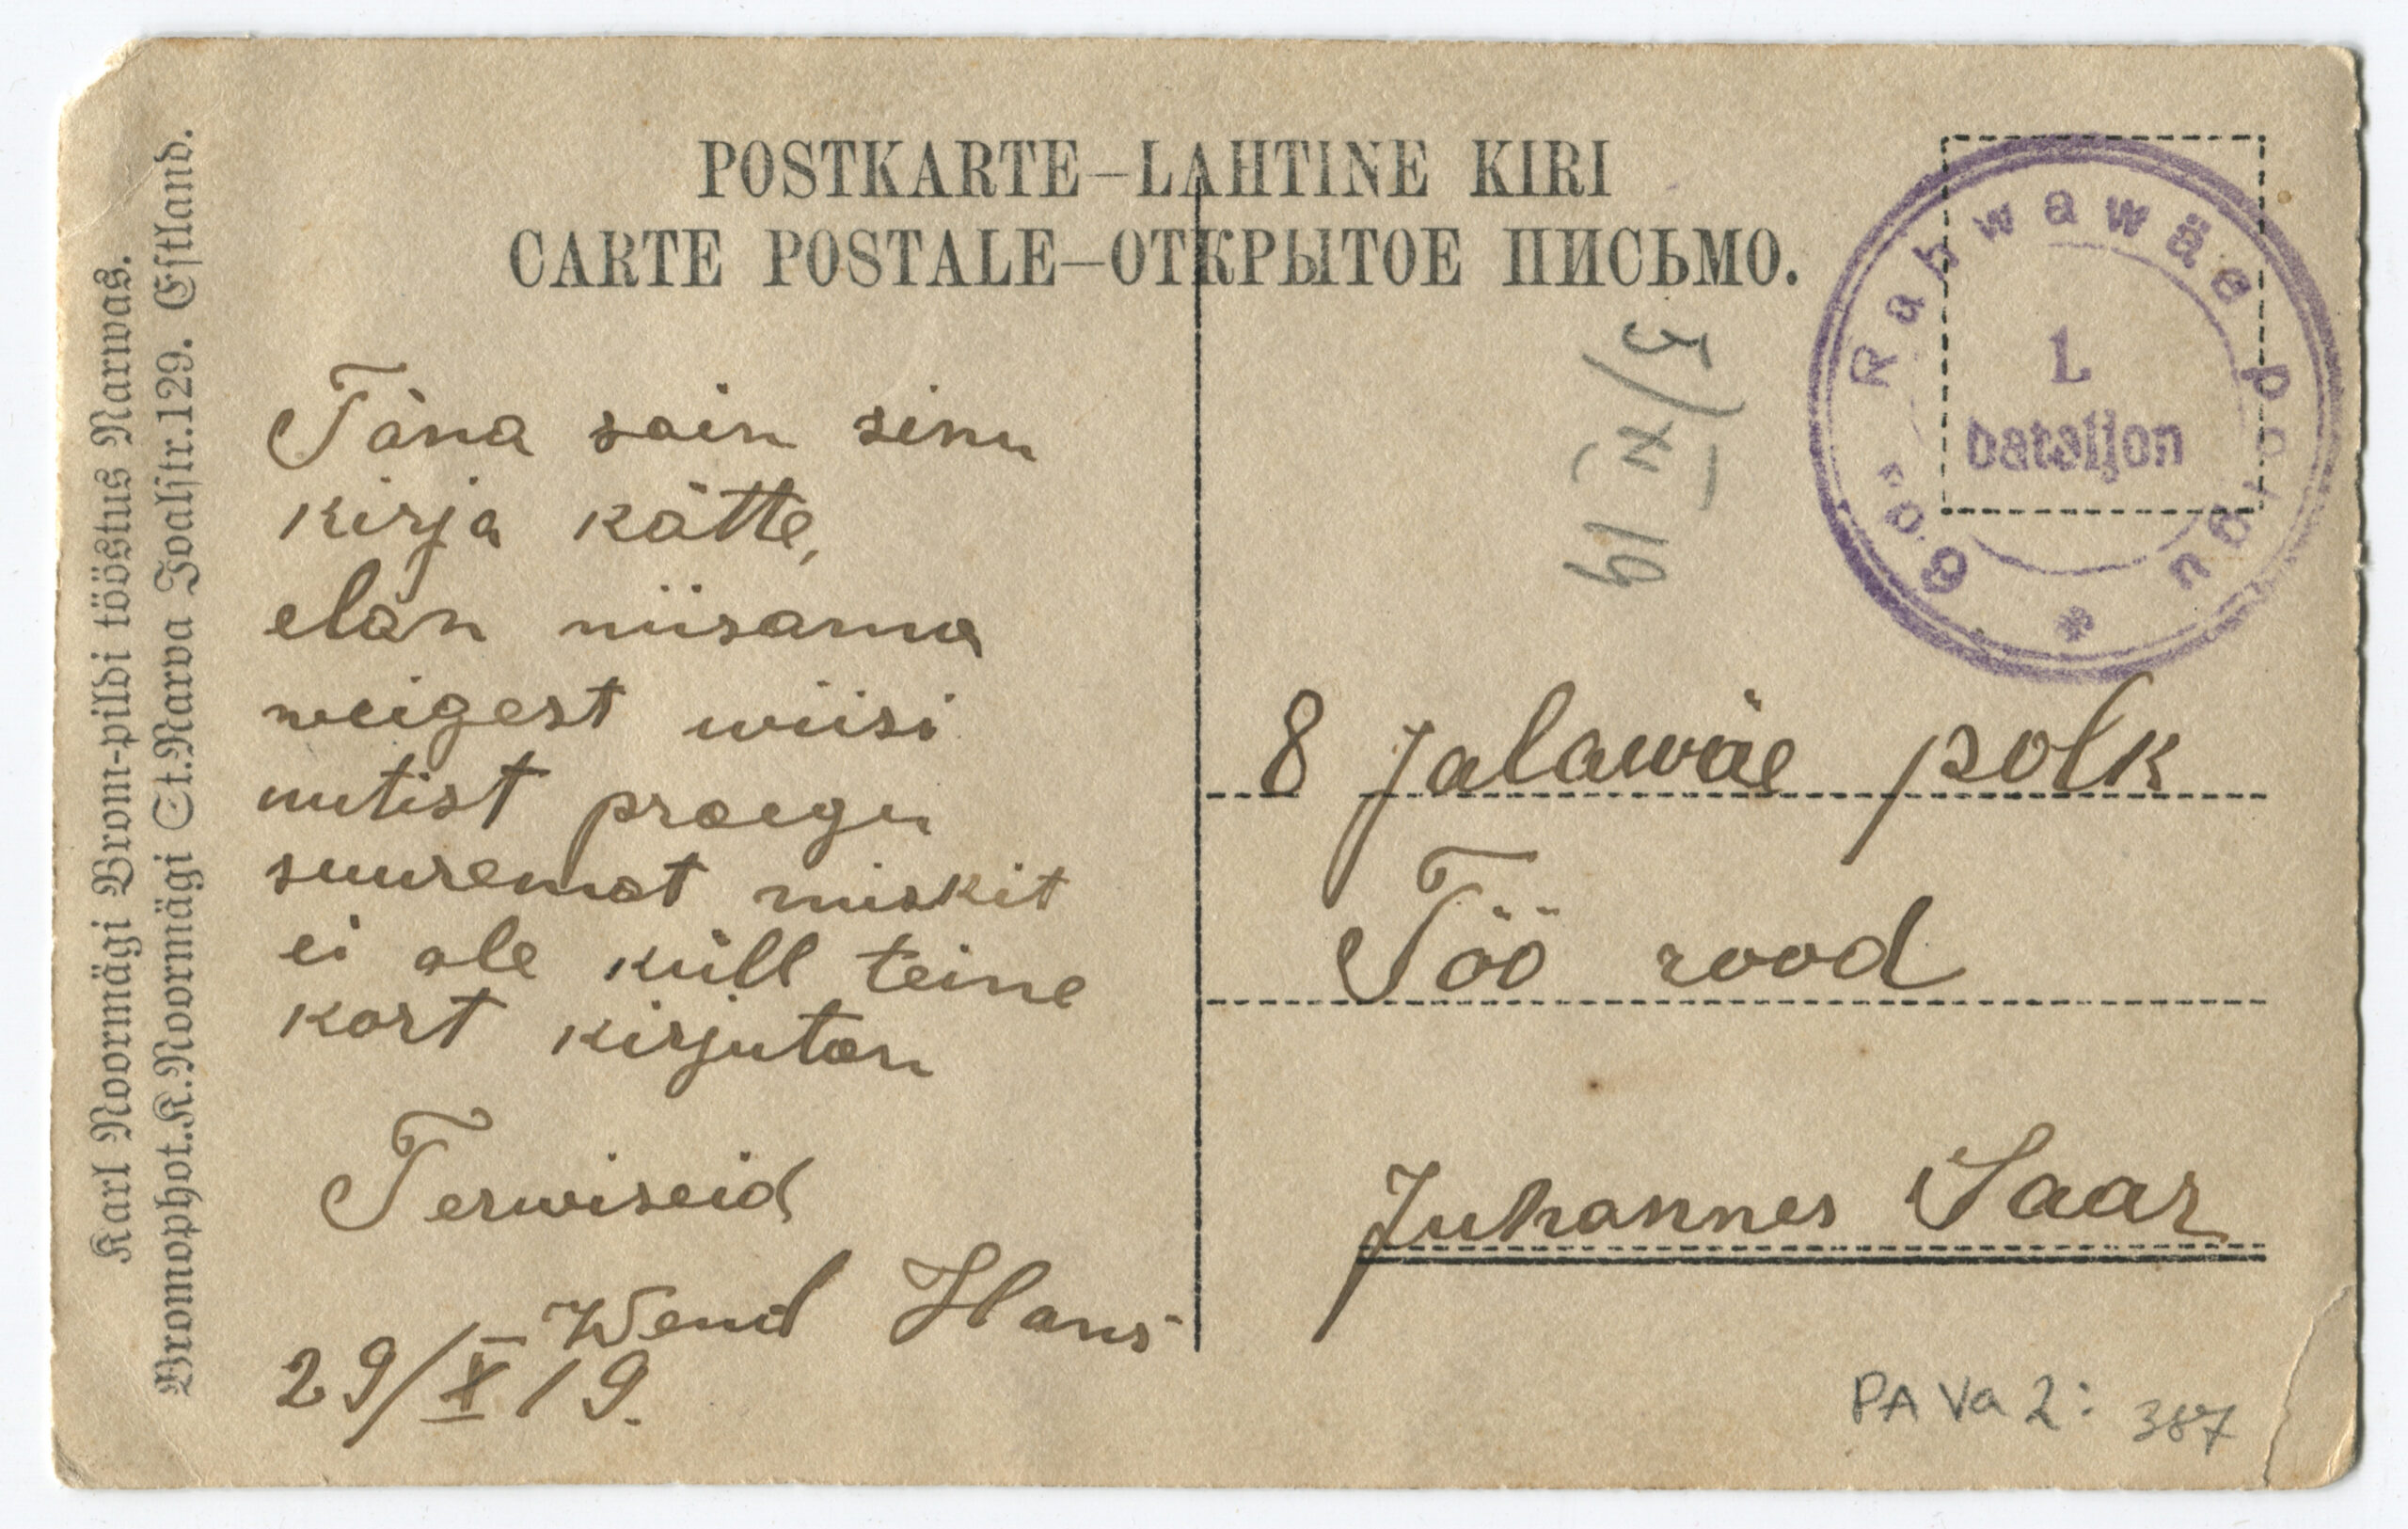 POSTKARTE–LAHTINE KIRI
CARTE POSTALE–ОТКРЫТОЕ ПИСЬМО.
Karl Noormägi Brom-pildi tööstus Narwas.
Bromophot.K.Noormägi St.Narva Joalstr.129. Estland.
Täna sain sinu
kirja kätte,
elan niisama
weigest wiisi
uutist praegu
suuremat miskit
ei ole küll teine
kort kirjutan
Terwiseid
Wend Hans
29/X 19.
6. Rahwawäe polgu
1.
bataljon
5/XI 19
8 Jalawäe polk
Töö rood
Juhannes Saar
PA Va 2: 387